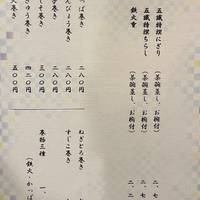 五織特撰にぎり
（茶碗蒸し、お椀付）
二、七
五織特撰ちらし
（茶碗蒸し、お椀付）
二、七
鉄火重
（茶碗蒸し、お椀付）
二、二
っぱ巻き
二八〇
んぴょう巻き
二八〇
巻き
二八〇
しそ巻き
三〇〇
きゅう巻き
四二〇
巻き
五〇〇
ねぎとろ巻き
すじこ巻き
巻拾三種
一、
（鉄火・かっぱ